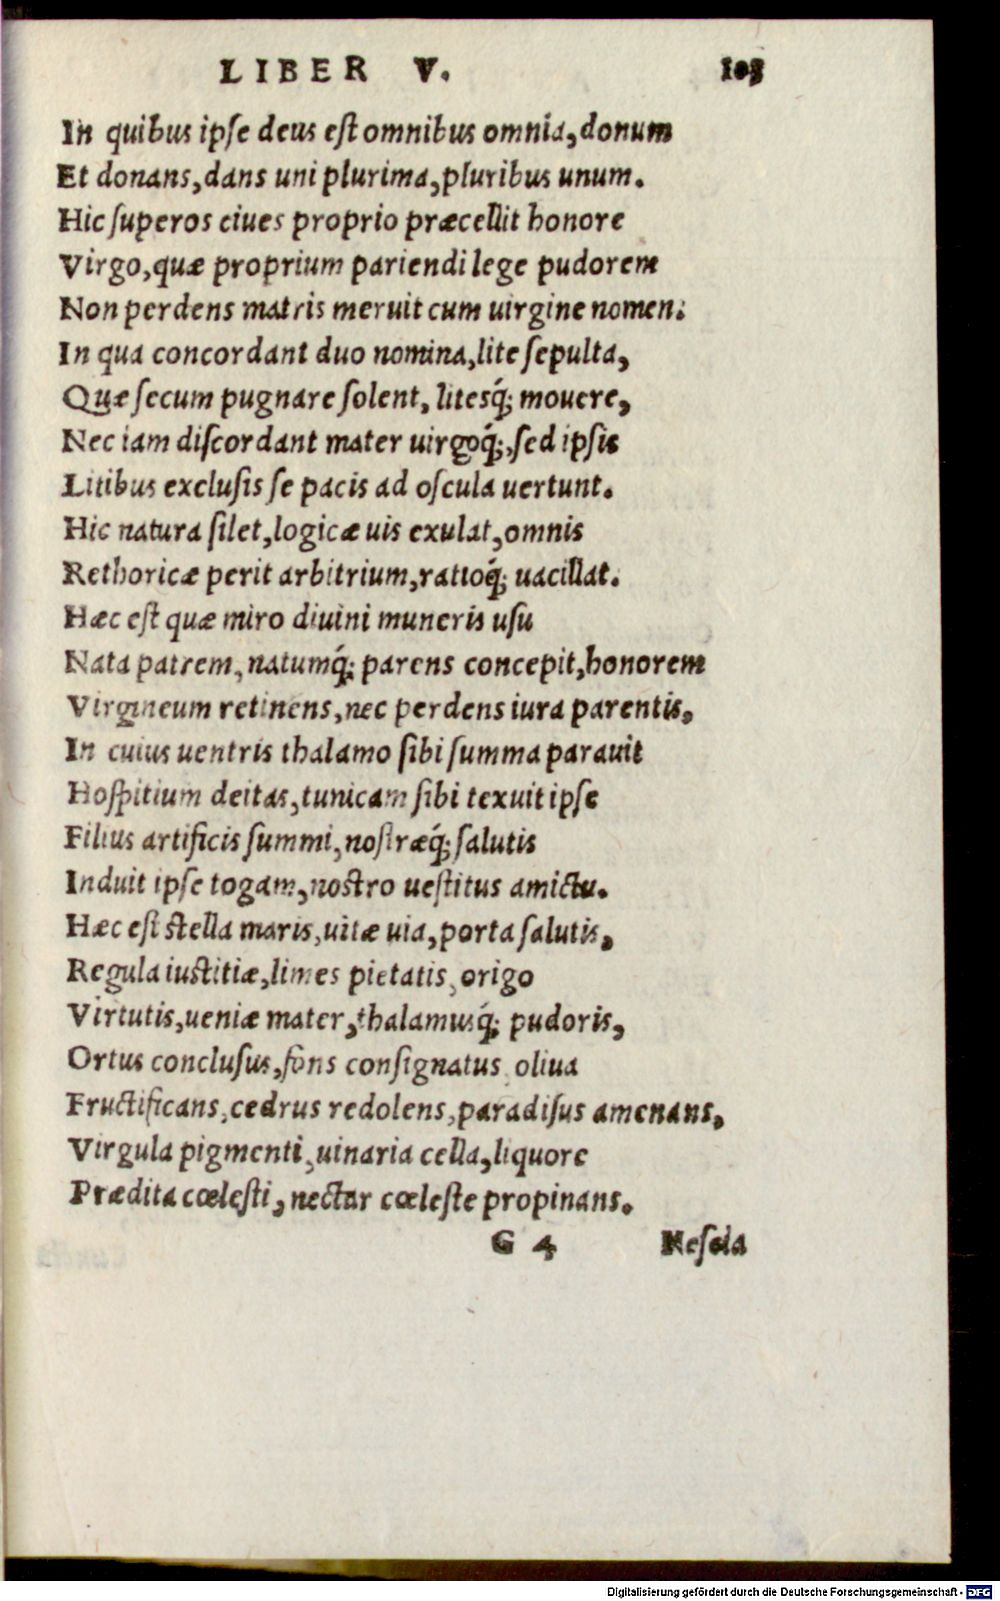 LIBER V. 103
In quibus ipſe deus eſt omnibus omnia, donum
Et donans, dans uni plurima, pluribus unum.
Hic ſuperos ciues proprio præcellit honore
Virgo, quæ proprium pariendi lege pudorem
Non perdens matris meruit cum uirgine nomen:
In qua concordant duo nomina, lite ſepulta,
Quæ ſecum pugnare ſolent, litesq́; mouere,
Nec iam diſcordant mater uirgoq́;, ſed ipſis
Litibus excluſis ſe pacis ad oſcula uertunt.
Hic natura ſilet, logicæ uis exulat, omnis
Rethoricæ perit arbitrium, ratioq́; uacillat.
Hæc eſt quæ miro diuini muneris uſu
Nata patrem, natumq́; parens concepit, honorem
Virgineum retinens, nec perdens iura parentis,
In cuius uentris thalamo ſibi ſumma parauit
Hoſpitium deitas, tunicam ſibi texuit ipſe
Filius artificis ſummi, noſtræq́; ſalutis
Induit ipſe togam, noſtro ueſtitus amictu.
Hæc eſt ſtella maris, uitæ uia, porta ſalutis,
Regula iuſtitiæ, limes pietatis, origo
Virtutis, ueniæ mater, thalamusq́; pudoris,
Ortus concluſus, fons conſignatus, oliua
Fructificans, cedrus redolens, paradiſus amenans,
Virgula pigmenti, uinaria cella, liquore
Prædita cœleſti, nectar cœleſte propinans.
G 4 Neſcia
Digitalisierung gefördert durch die Deutsche Forschungsgemeinschaft - DFG